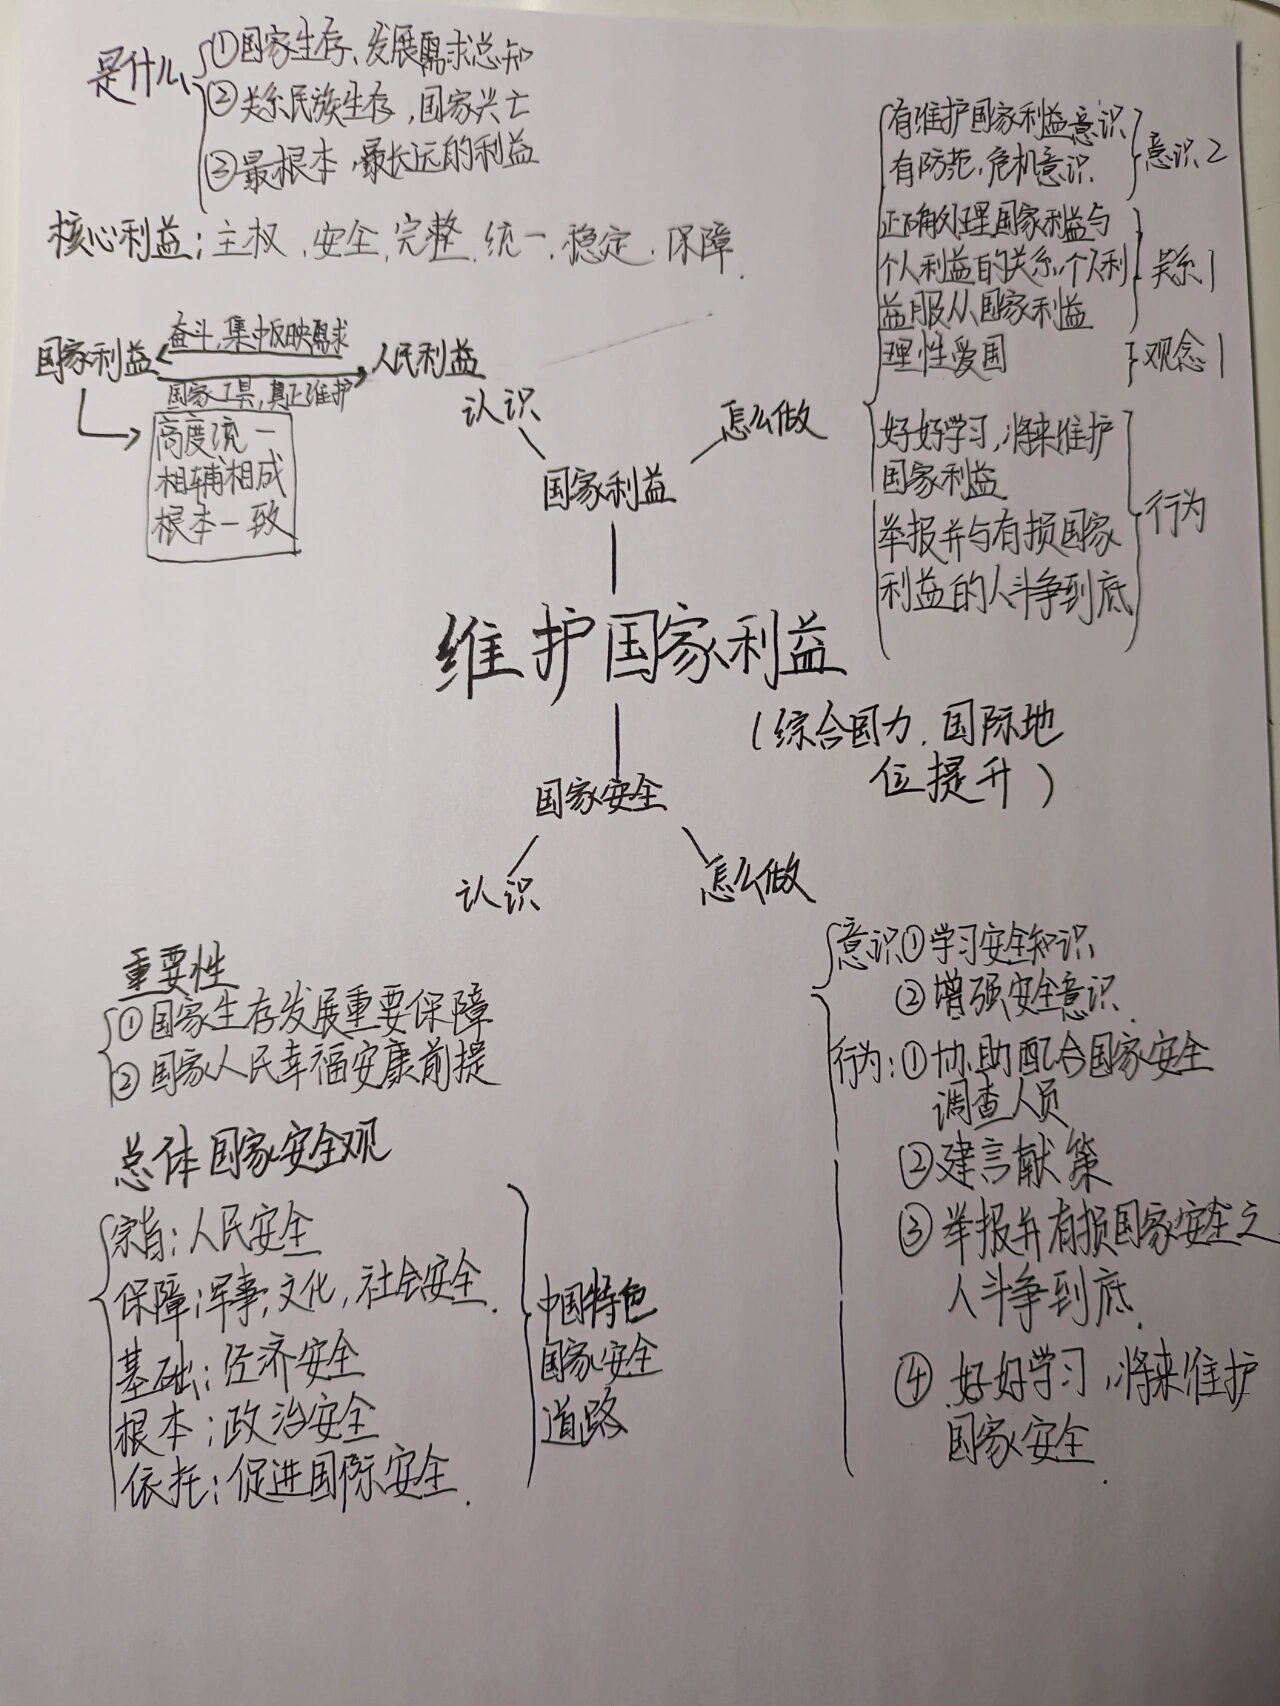 是什么
①国家生存、发展需求总和
②关系民族生存，国家兴亡
③最根本，最长远的利益
核心利益：主权、安全、完整、统一、稳定、保障.
奋斗，集中反映需求
国家利益
人民利益
国家工具，真正维护
高度统一
相辅相成
根本一致
认识
怎么做
国家利益
有维护国家利益意识
有防范，危机意识
意识2
正确处理国家利益与
个人利益的关系，个人利
益服从国家利益
关系1
理性爱国
观念1
好好学习，将来维护
国家利益
举报并与有损国家
利益的人斗争到底
行为
维护国家利益
(综合国力、国际地
位提升)
国家安全
认识
怎么做
重要性
①国家生存发展重要保障
②国家人民幸福安康前提
总体国家安全观
宗旨：人民安全
保障：军事，文化，社会安全.
基础：经济安全
根本：政治安全
依托：促进国际安全.
中国特色
国家安全
道路
意识①学习安全知识
②增强安全意识.
行为：①协助配合国家安全
调查人员
②建言献策
③举报并有损国家安全之
人斗争到底.
④好好学习，将来维护
国家安全.